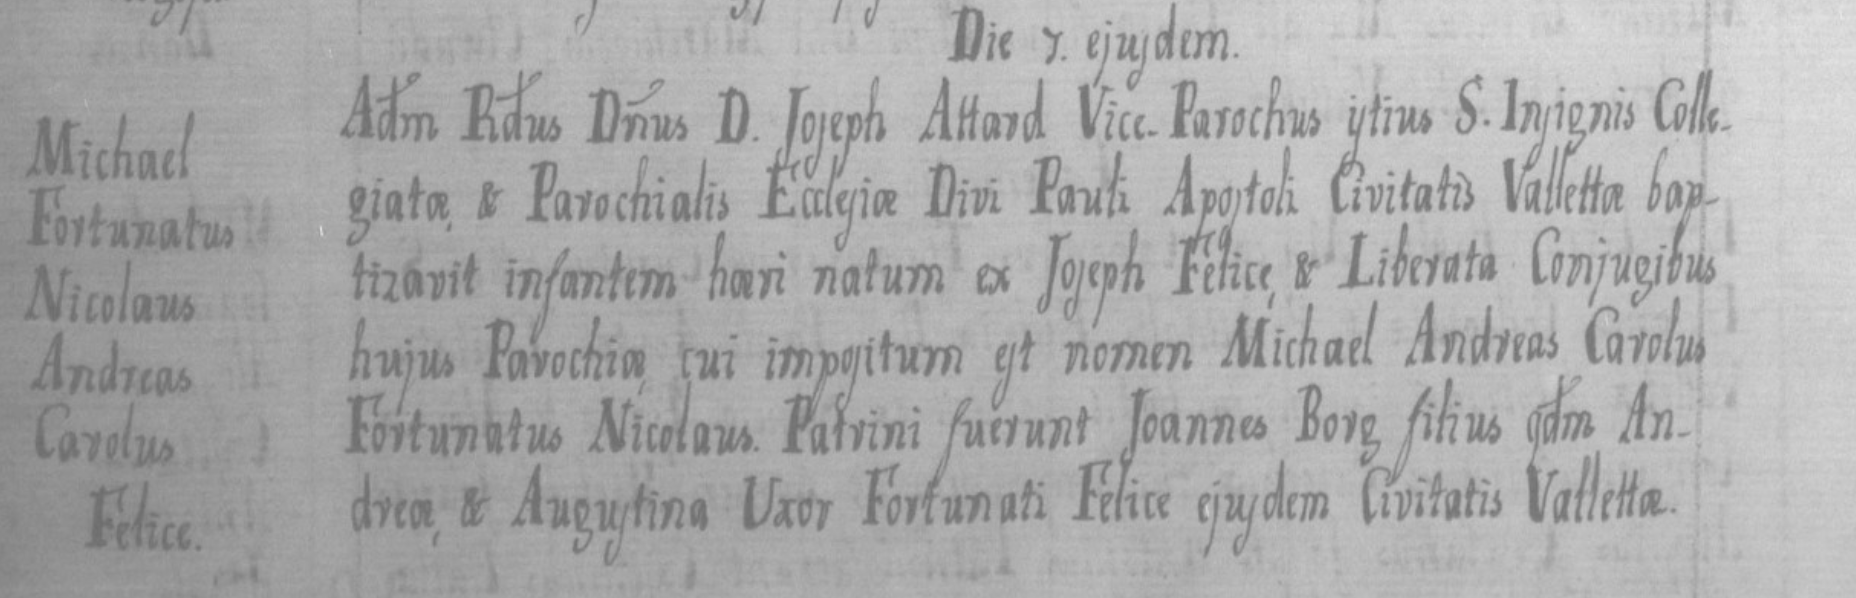 Die 7. ejusdem.
Adm Rdus Dnus D. Joseph Attard Vice-Parochus istius S. Insignis Colle-
giatæ, & Parochialis Ecclesiæ Divi Pauli Apostoli Civitatis Vallettæ bap-
tizavit infantem hæri natum ex Joseph Felice, & Liberata Conjugibus
hujus Parochiæ, cui impositum est nomen Michael Andreas Carolus
Fortunatus Nicolaus. Patrini fuerunt Joannes Borg filius qdm An-
dreæ, & Augustina Uxor Fortunati Felice ejusdem Civitatis Vallettæ.
Michael
Fortunatus
Nicolaus
Andreas
Carolus
Felice.